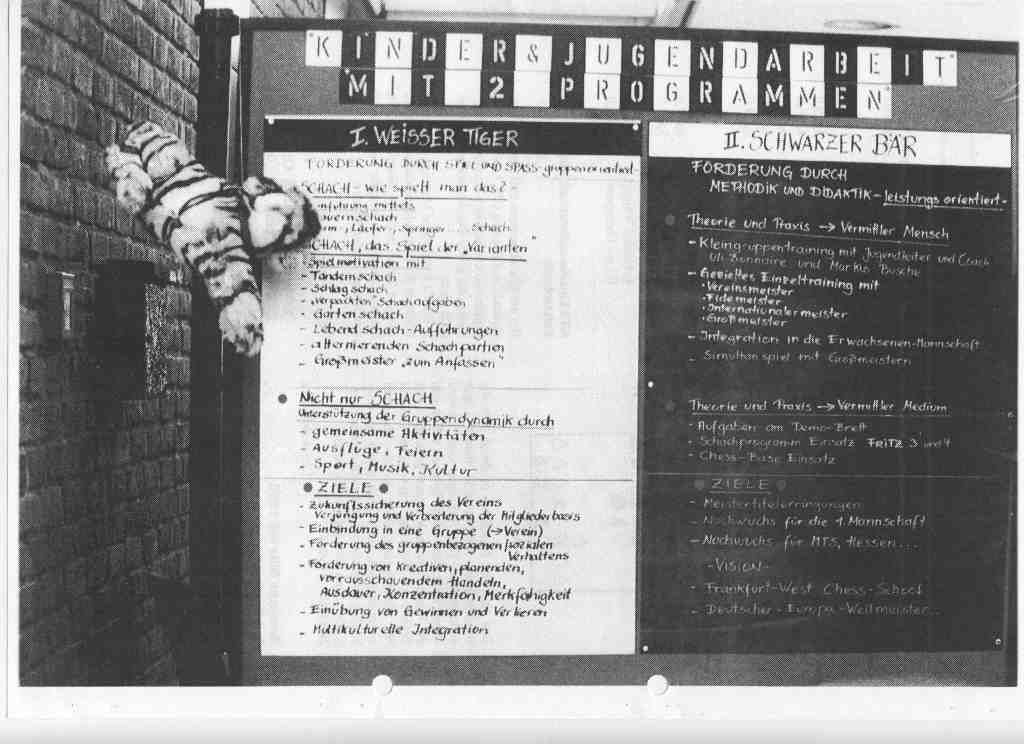 KINDER & JUGENDARBEIT
MIT 2 PROGRAMMEN
I. WEISSER TIGER
FÖRDERUNG DURCH SPIEL UND SPASS - gruppenorientiert -
SCHACH - wie spielt man das? -
Einführung mittels
Bauernschach
Turm-, Läufer-, Springer.... Schach
SCHACH, das Spiel der „Varianten"
Spielmotivation mit
- Tandemschach
- Schlagschach
- „verpackten" Schachaufgaben
- Gartenschach
- Lebendschach-Aufführungen
- alternierenden Schachpartien
- Großmeister „zum Anfassen"
Nicht nur SCHACH
Unterstützung der Gruppendynamik durch
- gemeinsame Aktivitäten
- Ausflüge, Feiern
- Sport, Musik, Kultur
ZIELE
- Zukunftssicherung des Vereins
Verjüngung und Verbreiterung der Mitgliederbasis
- Einbindung in eine Gruppe (→Verein)
- Förderung des gruppenbezogenen/sozialen
Verhaltens
- Förderung von kreativen, planenden,
vorrausschauendem Handeln,
Ausdauer, Konzentration, Merkfähigkeit
- Einübung von Gewinnen und Verlieren
- Multikulturelle Integration
II. SCHWARZER BÄR
FÖRDERUNG DURCH
METHODIK UND DIDAKTIK - leistungsorientiert -
Theorie und Praxis → Vermittler Mensch
- Kleingruppentraining mit Jugendleiter und Coach
Uli Bonnaire und Marko Busche
- Gezieltes Einzeltraining mit
• Vereinsmeister
• Fidemeister
• Internationaler meister
• Großmeister
- Integration in die Erwachsenen-Mannschaft
- Simultanspiel mit Großmeistern
Theorie und Praxis → Vermittler Medium
- Aufgaben am Demo-Brett
- Schachprogramm Einsatz FRITZ 3 und 4
- Chess-Base Einsatz
ZIELE
- Meistertitelerringungen
- Nachwuchs für die 1. Mannschaft
- Nachwuchs für MTS, Hessen....
- VISION -
- Frankfurt-West Chess-School
- Deutscher - Europa - Weltmeister...